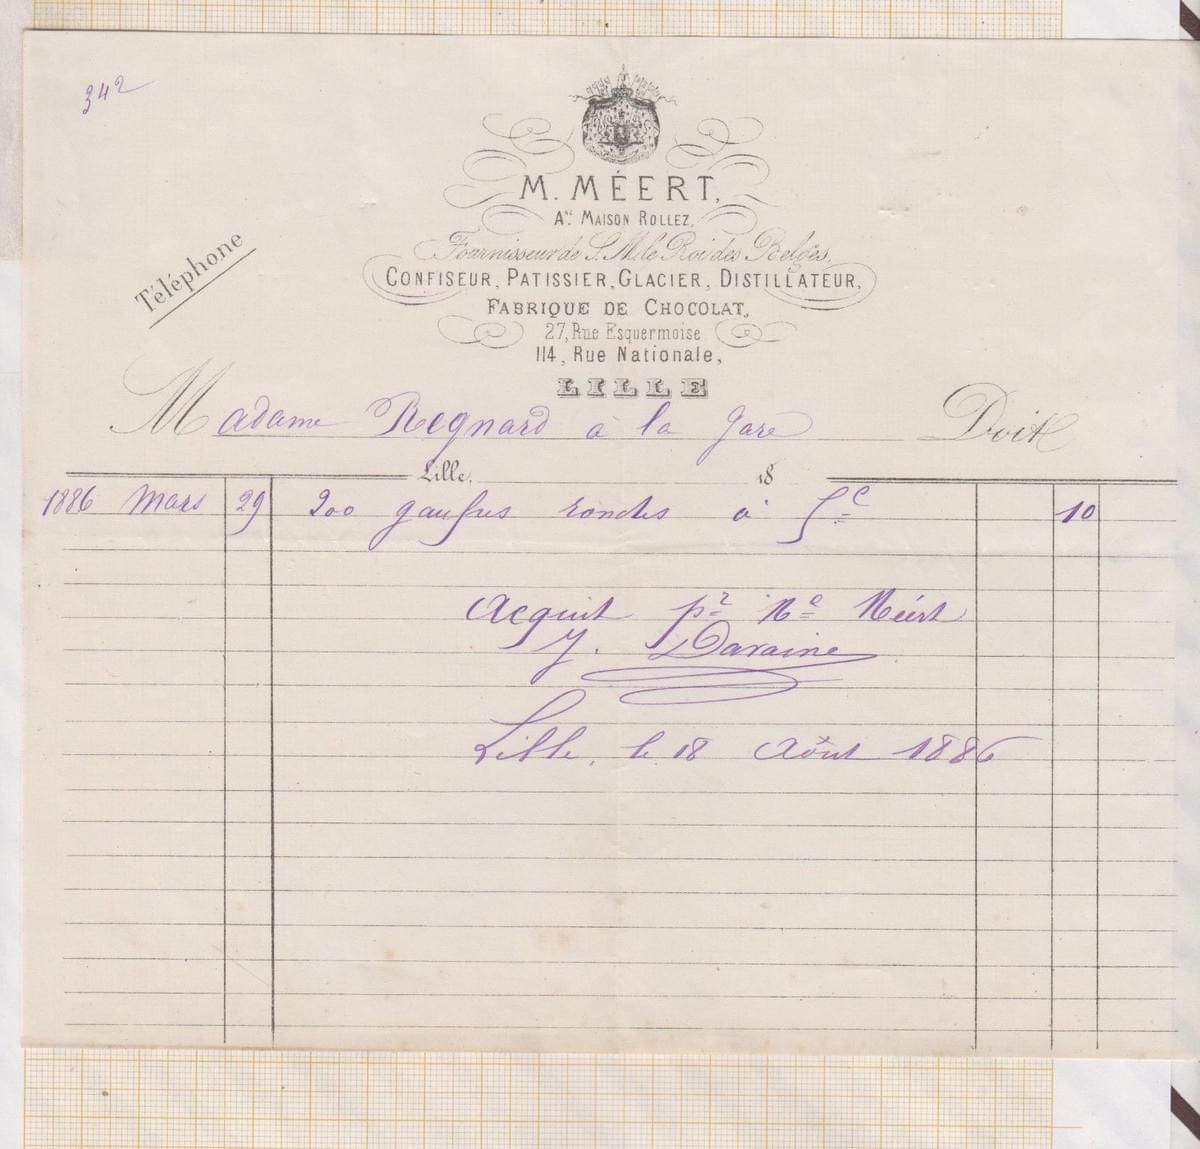 342
M. MÉERT,
Aᴺᴱ MAISON ROLLEZ,
Fournisseur de S. M. le Roi des Belges,
CONFISEUR, PATISSIER, GLACIER, DISTILLATEUR,
FABRIQUE DE CHOCOLAT,
27, Rue Esquermoise
114, Rue Nationale,
LILLE
Téléphone
Madame Regnard à la Gare Doit
Lille, 18
1886 Mars 29 200 gaufres rondes à 5c 10
Acquit pr Me Méert
Y. Davaine
Lille, le 18 Août 1886